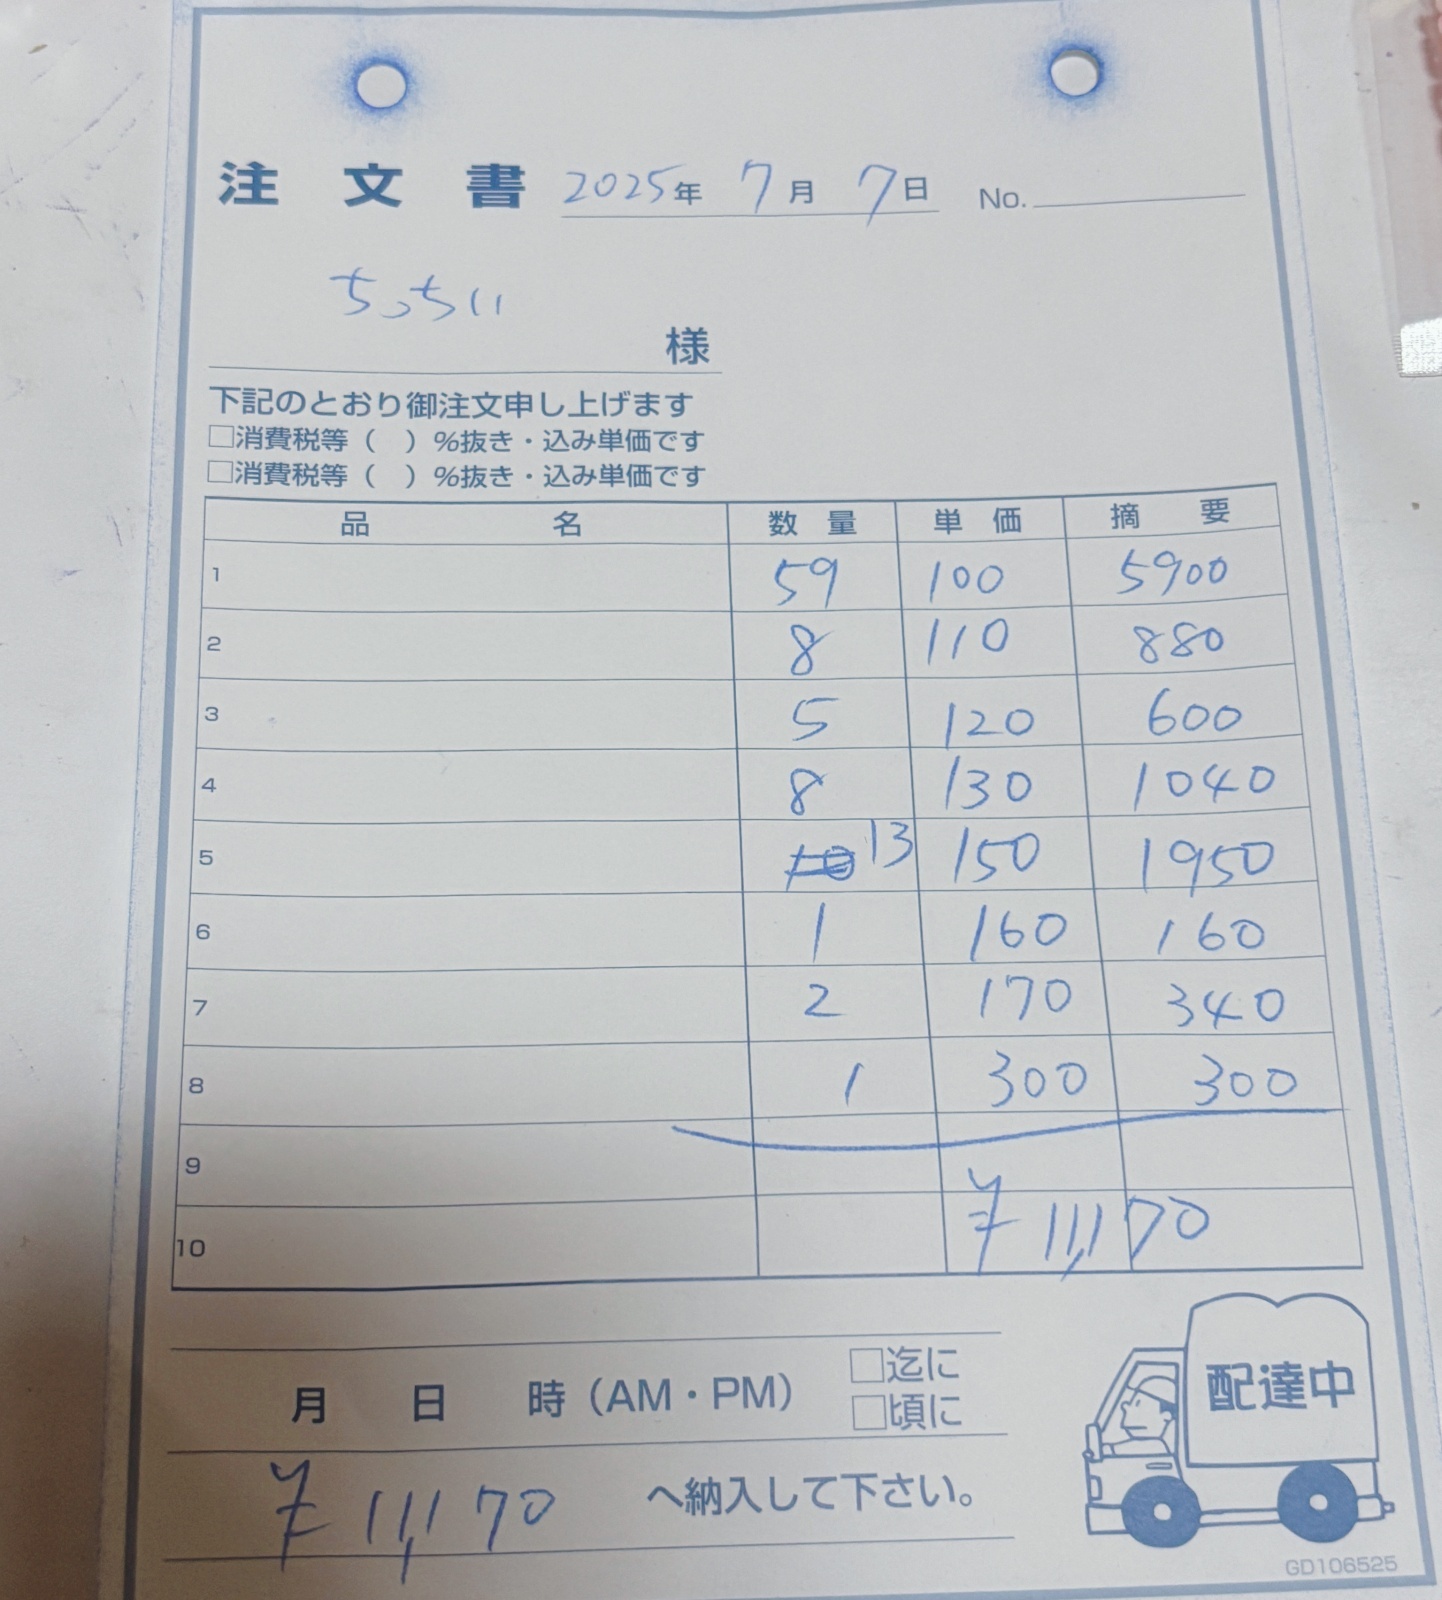 注文書 2025年 7月 7日 No.
ちっちい 様
下記のとおり御注文申し上げます
□消費税等( )%抜き・込み単価です
□消費税等( )%抜き・込み単価です
品名 数量 単価 摘要
1 59 100 5900
2 8 110 880
3 5 120 600
4 8 130 1040
5 13 150 1950
6 1 160 160
7 2 170 340
8 1 300 300
9
10 ¥11,170
月 日 時(AM・PM) □迄に
□頃に
¥11,170 へ納入して下さい。
配達中
GD106525